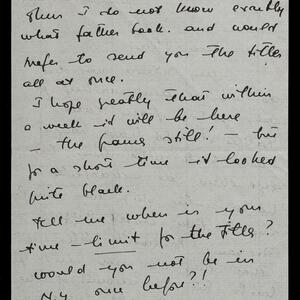 then I do not know exactly
what father took. and would
prefer to send you the titles
all at once.
I hope greatly that within
a week it will be here
— the frames still! — but
for a short time it looked
quite black.
tell me when is your
time-limit for the titles?
would you not be in
N.Y. once before?!